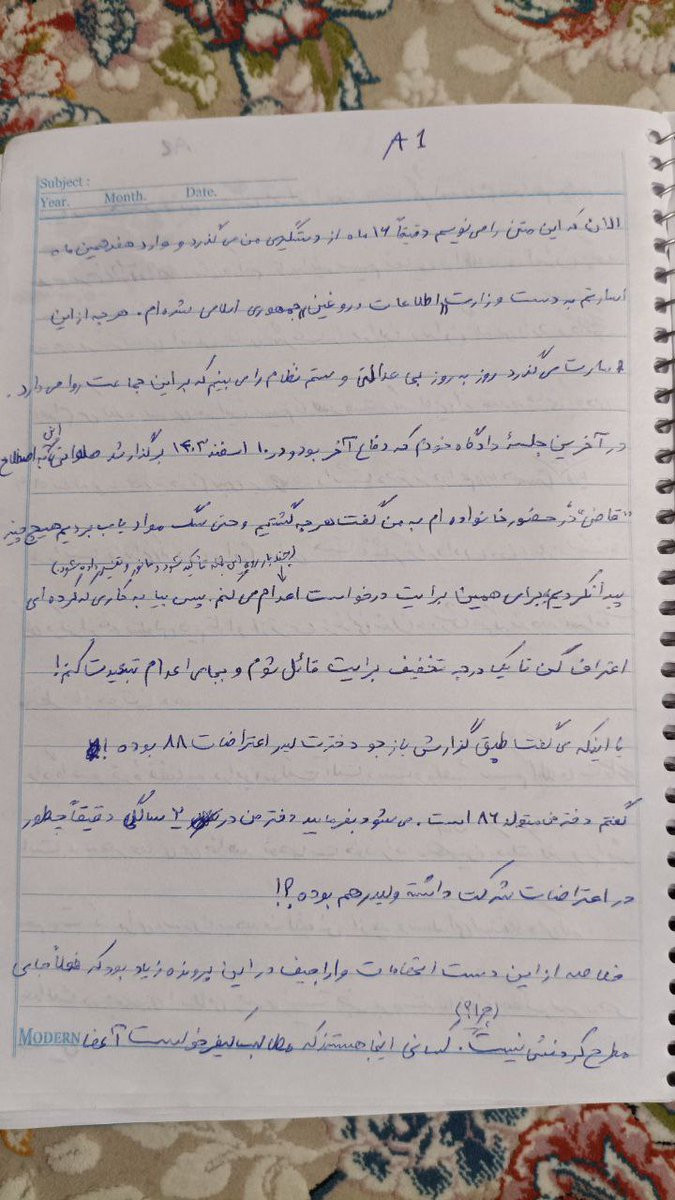 A1
Subject :
Year. Month. Date.
الان که این متن را می‌نویسم دقیقاً ۱۶ ماه از دستگیری من می‌گذرد و وارد هفدهمین ماه
اسارتم به دست وزارت "اطلاعات دروغین" جمهوری اسلامی شده‌ام. هر چه از این
اسارت می‌گذرد روز به روز بی عدالتی و ستم نظام را می‌بینم که بر این جماعت روا می‌دارد.
در آخرین جلسهٔ دادگاه خودم که دفاع آخر بود و در ۱۰ اسفند ۱۴۰۳ برگزار شد صلواتی این به اصطلاح
"قاضی" در حضور خانواده‌ام به من گفت هر چه گشتیم و حتی سگ مواد یاب بردیم هیچ چیز
(چند بار روی این جمله تأکید شود و مانور و تفسیر داده شود)
پیدا نکردیم، برای همین برایت درخواست اعدام می‌کنم. پس بیا به کاری که نکرده‌ای
اعتراف کن تا یک درجه تخفیف برایت قائل شوم و بجای اعدام تبعیدت کنم!
با اینکه می‌گفت طبق گزارش بازجو دخترت لیدر اعتراضات ۸۸ بوده!
گفتم دختر من متولد ۸۶ است. می‌شود بفرمایید دختر من در ۲ سالگی دقیقاً چطور
در اعتراضات شرکت داشته و لیدر هم بوده؟!
خلاصه از این دست اتهامات و اراجیف در این پرونده زیاد بود که فعلاً جای
(چرا؟)
مطرح کردنش نیست. کسانی اینجا هستند که مطالب کیفرخواست آنها
MODERN